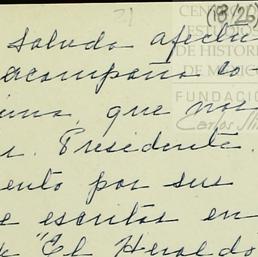 (18/26)
21
CENTRO
ESTUDIOS
DE HISTORI
DE M
FUNDACIÓ
Carlos Sli
saludo afectu
acompaño co-
que nos
r. Presidente.
ento por sus
e escritos en
"El Heraldo